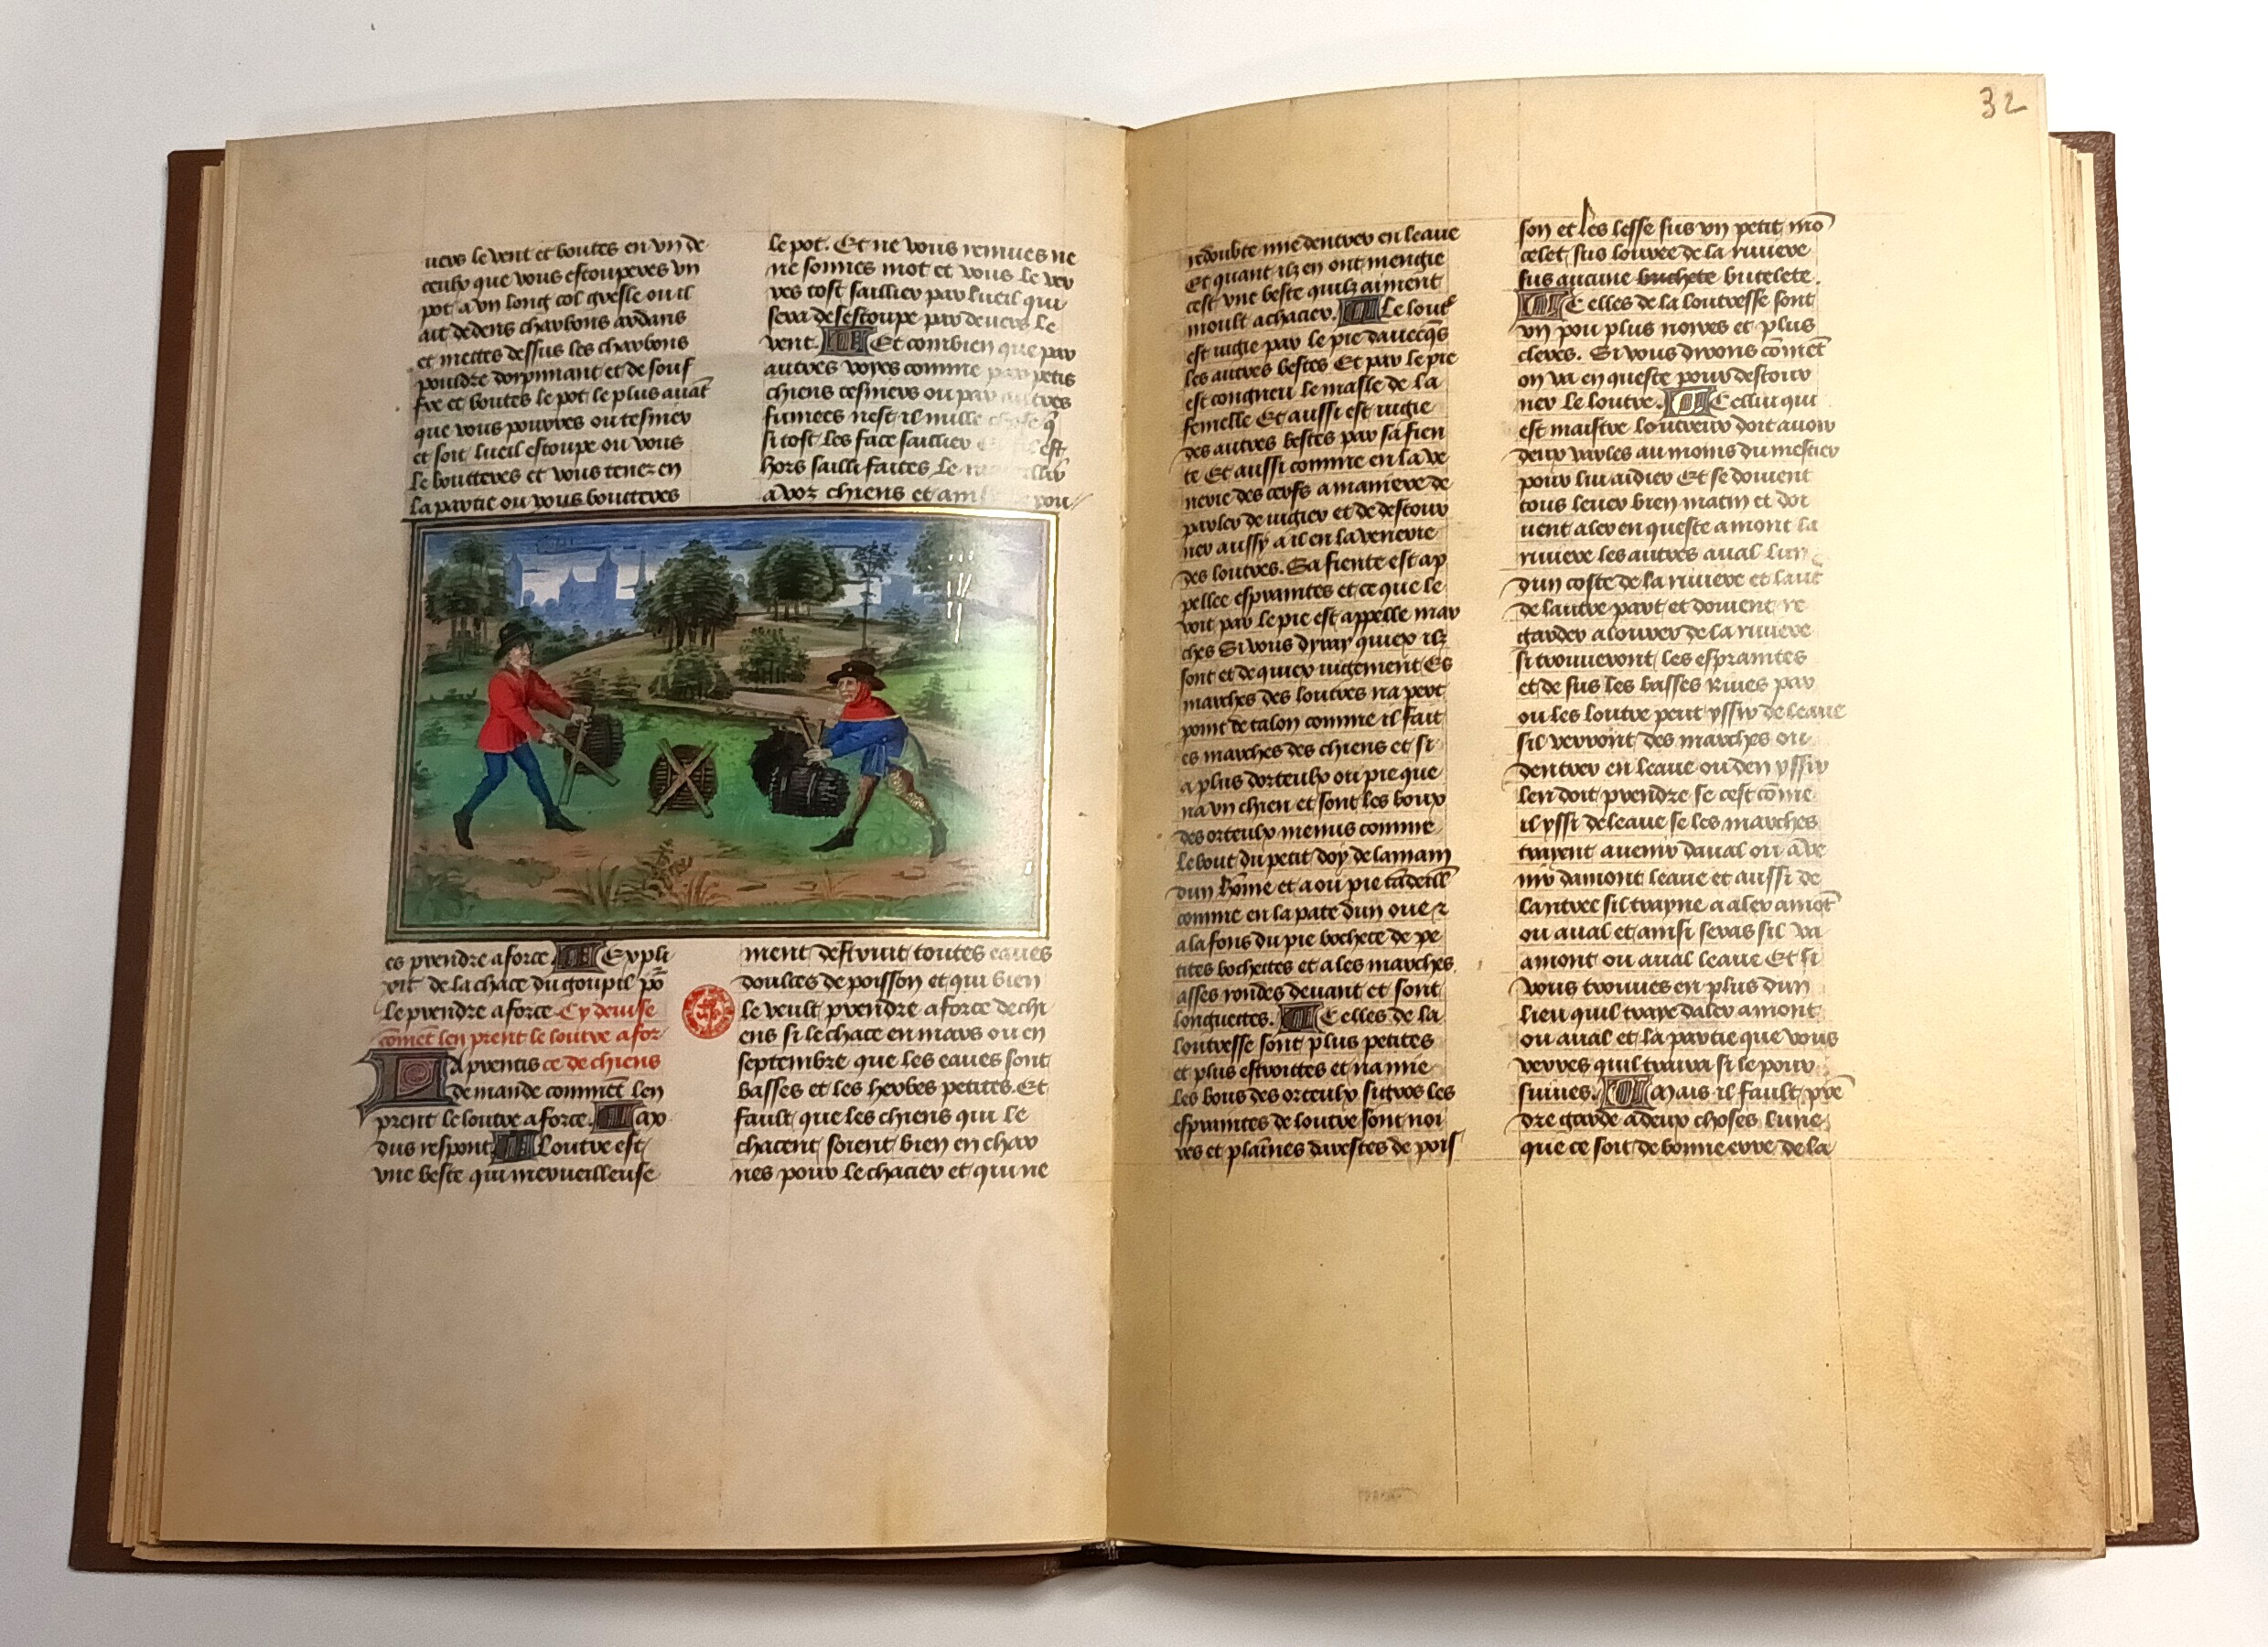 uers le vent et boutes en vn de
ceulx que vous estouperes vn
pot a vn long col gresle ou il
ait dedens charbons ardans
et mettes dessus les charbons
pouldre dorpimant et de souf
fre et boutes le pot le plus auāt
que vous pourres ou tesnier
et soit lueil estoupe ou vous
le boutteres et vous tenez en
la partie ou vous boutteres
le pot. Et ne vous remues ne
ne sonnes mot et vous le ver
res tost saillier par lueil qui
sera desestoupe par deuers le
vent. Et combien que par
autres voyes comme par petis
chiens tesniers ou par autres
fumees nest il nulle chose q̄
si tost les face saillier est
hors sailli faites le
a voz chiens et pou
es prendre a force. Expli
cit de la chace du goupil po
le prendre a force Cy deuise
comēt len prent le loutre a for
Laprentis ce de chiens
demande commēt len
prent le loutre a force. Mo
dus respont Loutre est
vne beste qui merueilleuse
ment destruit toutes eaues
doulces de poisson et qui bien
le veult prendre a force de chi
ens si le chace en mars ou en
septembre que les eaues sont
basses et les herbes petites. Et
fault que les chiens qui le
chacent soient bien en char
nes pour le chacier et qui ne
32
redoubte mie dentrer en leaue
Et quant ilz en ont mengie
cest vne beste quilz aiment
moult a chacier. Le loutr
est iugie par le pie dauecq̄s
les autres bestes Et par le pie
est congneu le masle de la
femelle Et aussi est iugie
des autres bestes par sa fien
te Et aussi comme en la ve
nerie des cerfs a maniere de
parler de iugier et de destour
ner aussy a il en la venerie
des loutres. Sa fiente est ap
pellee espraintes et ce que le
voit par le pie est appelle mar
ches Si vous dyray quiex ilz
sont et de quiex iugement Es
marches des loutres na peut
point de talon comme il fait
es marches des chiens et si
a plus dorteulx ou pie que
na vn chien et sont les boux
des orteulx menus comme
le bout du petit doy de la main
dun hōme et a ou pie
comme en la pate dun oue z
a la fons du pie bochete de pe
tites bochettes et a les marches
asses rondes deuant et sont
longuettes. Celles de la
loutresse sont plus petites
et plus estroittes et na mie
les bous des orteulx si gros les
espraintes de loutre sont noi
res et plaines darestes de pois
son et les lesse sus vn petit mō
celet sus louree de la riuiere
sus aucune buchete butelete.
Celles de la loutresse sont
vn pou plus noires et plus
cleres. Si vous dirons cōmēt
on va en queste pour destour
ner le loutre. Cellui qui
est maistre loutreur doit auoir
deux varles au moins du mestier
pour lui aidier Et se doiuent
tous leuer bien matin et doi
uent aler en queste amont la
riuiere les autres aual lun
dun coste de la riuiere et laut
de lautre part et doiuent re
garder a louree de la riuiere
si trouueront les espraintes
et de sus les basses riues par
ou les loutre peut yssir de leaue
sil verront des marches ou
dentrer en leaue ou den yssir
len doit prendre se cest cōme
il yssi de leaue se les marches
trayent auenir daual ou a ve
nir damont leaue et aussi de
lantree sil trayne a aler amōt
ou aual et ainsi seras sil va
amont ou aual leaue Et si
vous trouues en plus dun
lieu quil traye daler amont
ou aual et la partie que vous
verres quil traira si le pour
suiues. Mais il fault prē
dre garde a deux choses lune
que ce soit de bonne erre de la